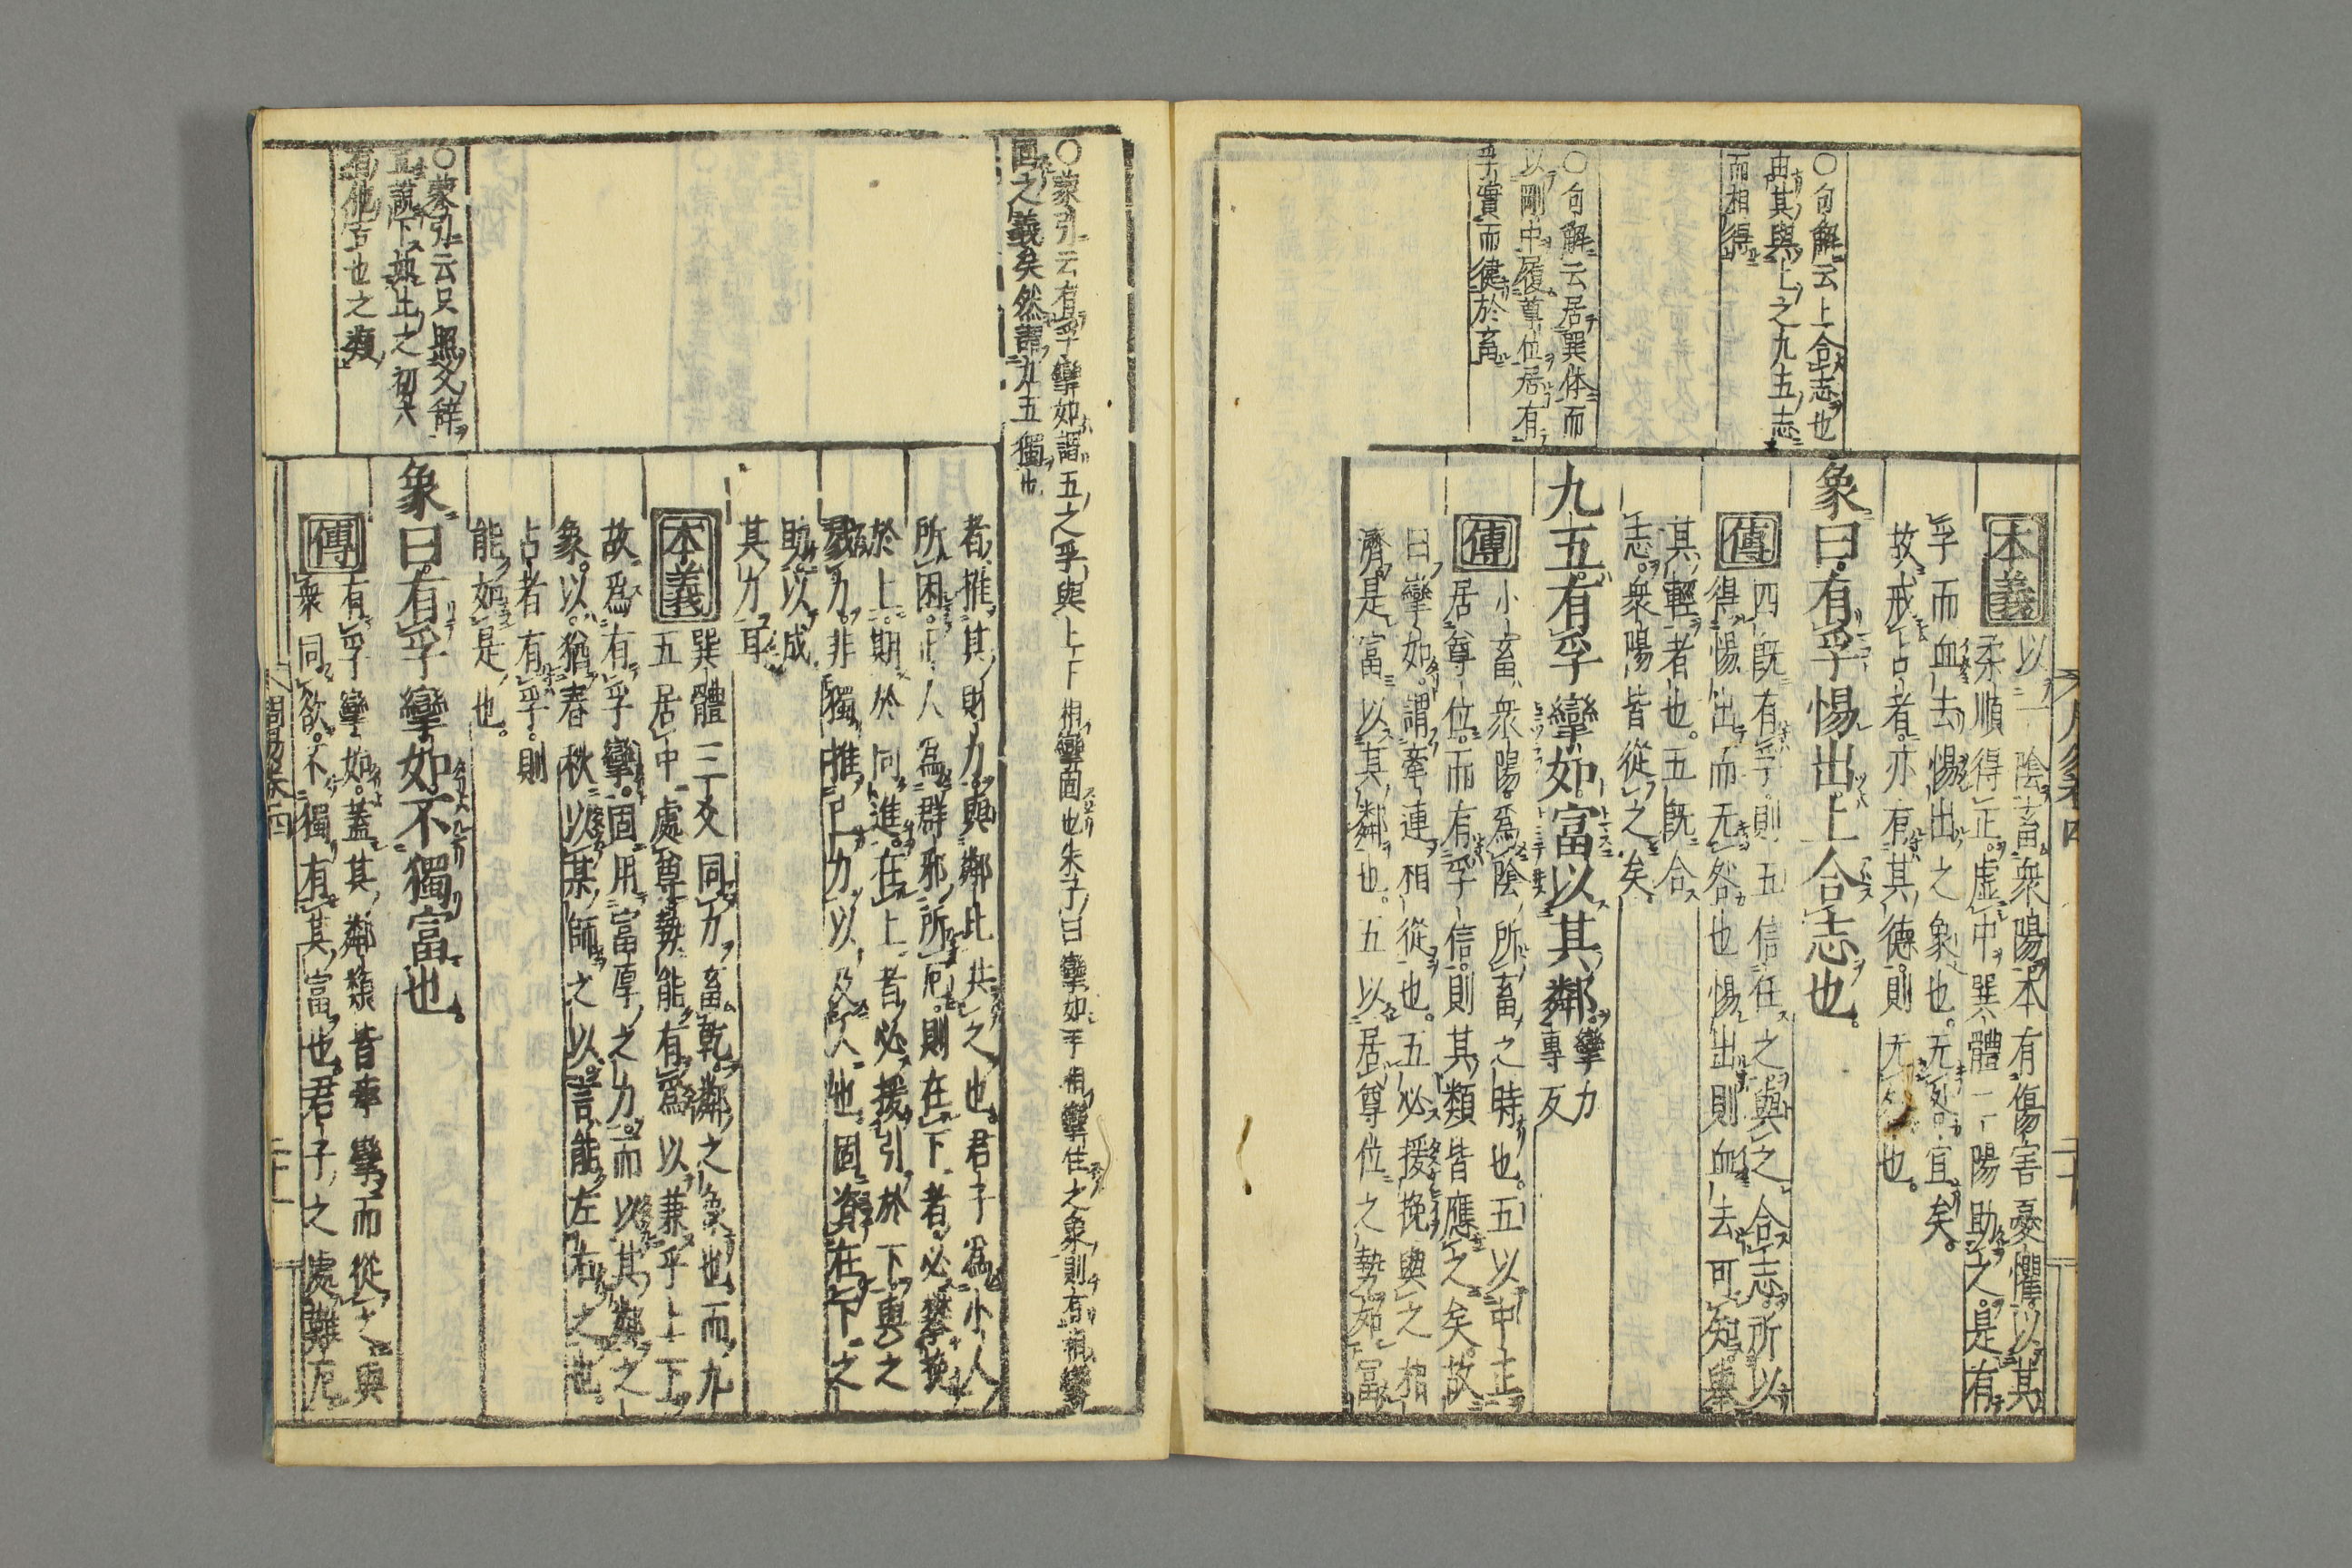 〇句解云上合志也
由其與上之九五志
而相得
〇句解云居巽体而
以剛中履尊位居有
孚實而健於畜
本義
以一陰畜衆陽本有傷害憂懼以其
柔順得正虛中巽體二陽助之是有
孚而血去惕出之象也无咎宜矣
故戒占者亦有其德則无咎也
象曰有孚惕出上合志也
傳
四既有孚則五信任之與之合志所以
得惕出而无咎也惕出則血去可知舉
其輕者也五既合
志衆陽皆從之矣
九五有孚攣如富以其鄰
攣力
專反
傳
小畜衆陽爲陰所畜之時也五以中正
居尊位而有孚信則其類皆應之矣故
曰攣如謂牽連相從也五必援挽與之相
濟是富以其鄰也五以居尊位之勢如富
〇蒙引云有孚攣如謂五之孚與上下相攣固也朱子曰攣如手相攣住之象則有相攣
固之義矣然謂九五獨也
者推其財力與鄰比共之也君子爲小人
所困正人爲群邪所厄則在下者必攀挽
於上期於同進在上者必援引於下與之
戮力非獨推己力以及人也固資在下之
助以成
其力耳
本義
巽體三爻同力畜乾鄰之象也而九
五居中處尊勢能有爲以兼乎上下
故爲有孚攣固用富厚之力而以其鄰之
象以猶春秋以某師之以言能左右之也
占者有孚則
能如是也
〇蒙引云只照爻辞
直説下如比之初六
有他吉也之類
象曰有孚攣如不獨富也
傳
有孚攣如蓋其鄰類皆牽攣而從之與
衆同欲不獨有其富也君子之處難厄
周易卷四
二十一